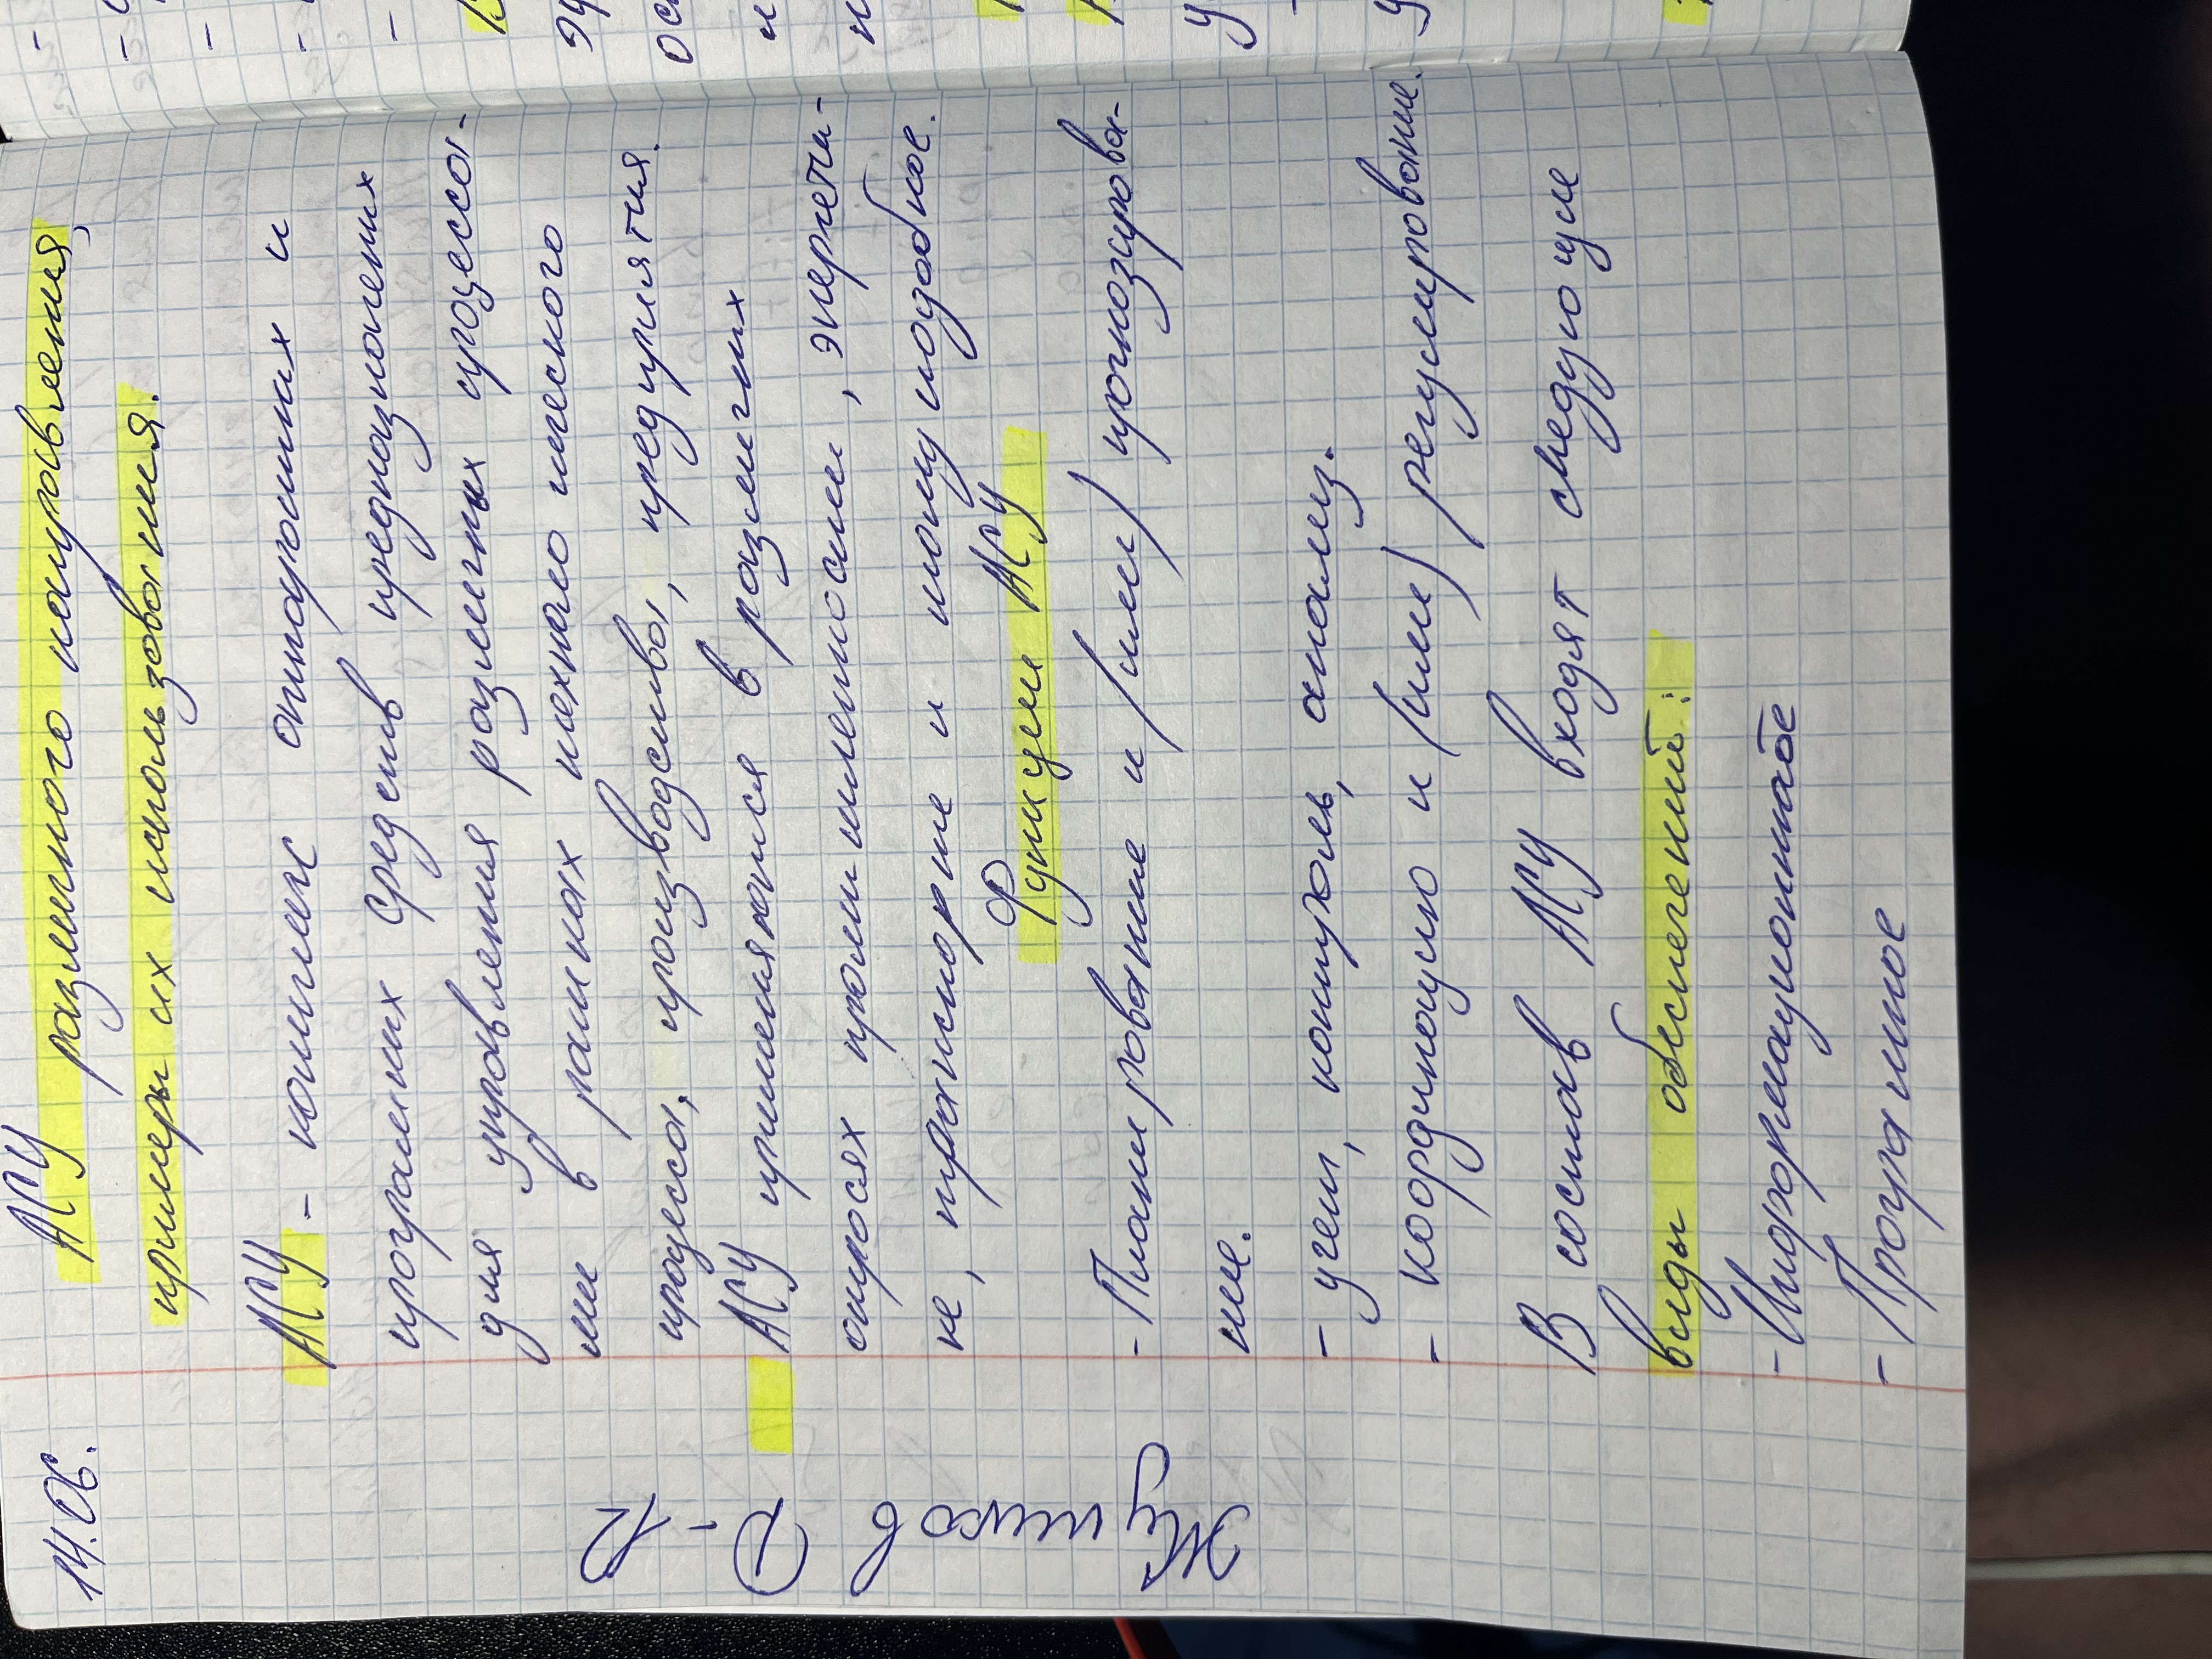 14.06.
АСУ различного направления,
примеры их использования.
АСУ - комплекс аппаратных и
програмних средств предназначених
для управления различных процесса-
ми в рамках технологического
процесса, производства, предприятия.
АСУ применяются в различних
отраслях промишлености, энергети-
ке, транспорте и тому подобное.
Функции АСУ
- Планирование и (или) прогнозирова-
ние.
- учет, контроль, анализ.
- координацию и (или) регулирование.
В состав АСУ входят следующие
виды обеспечений:
- Информационное
- Програмное
Жупиков
Д-12